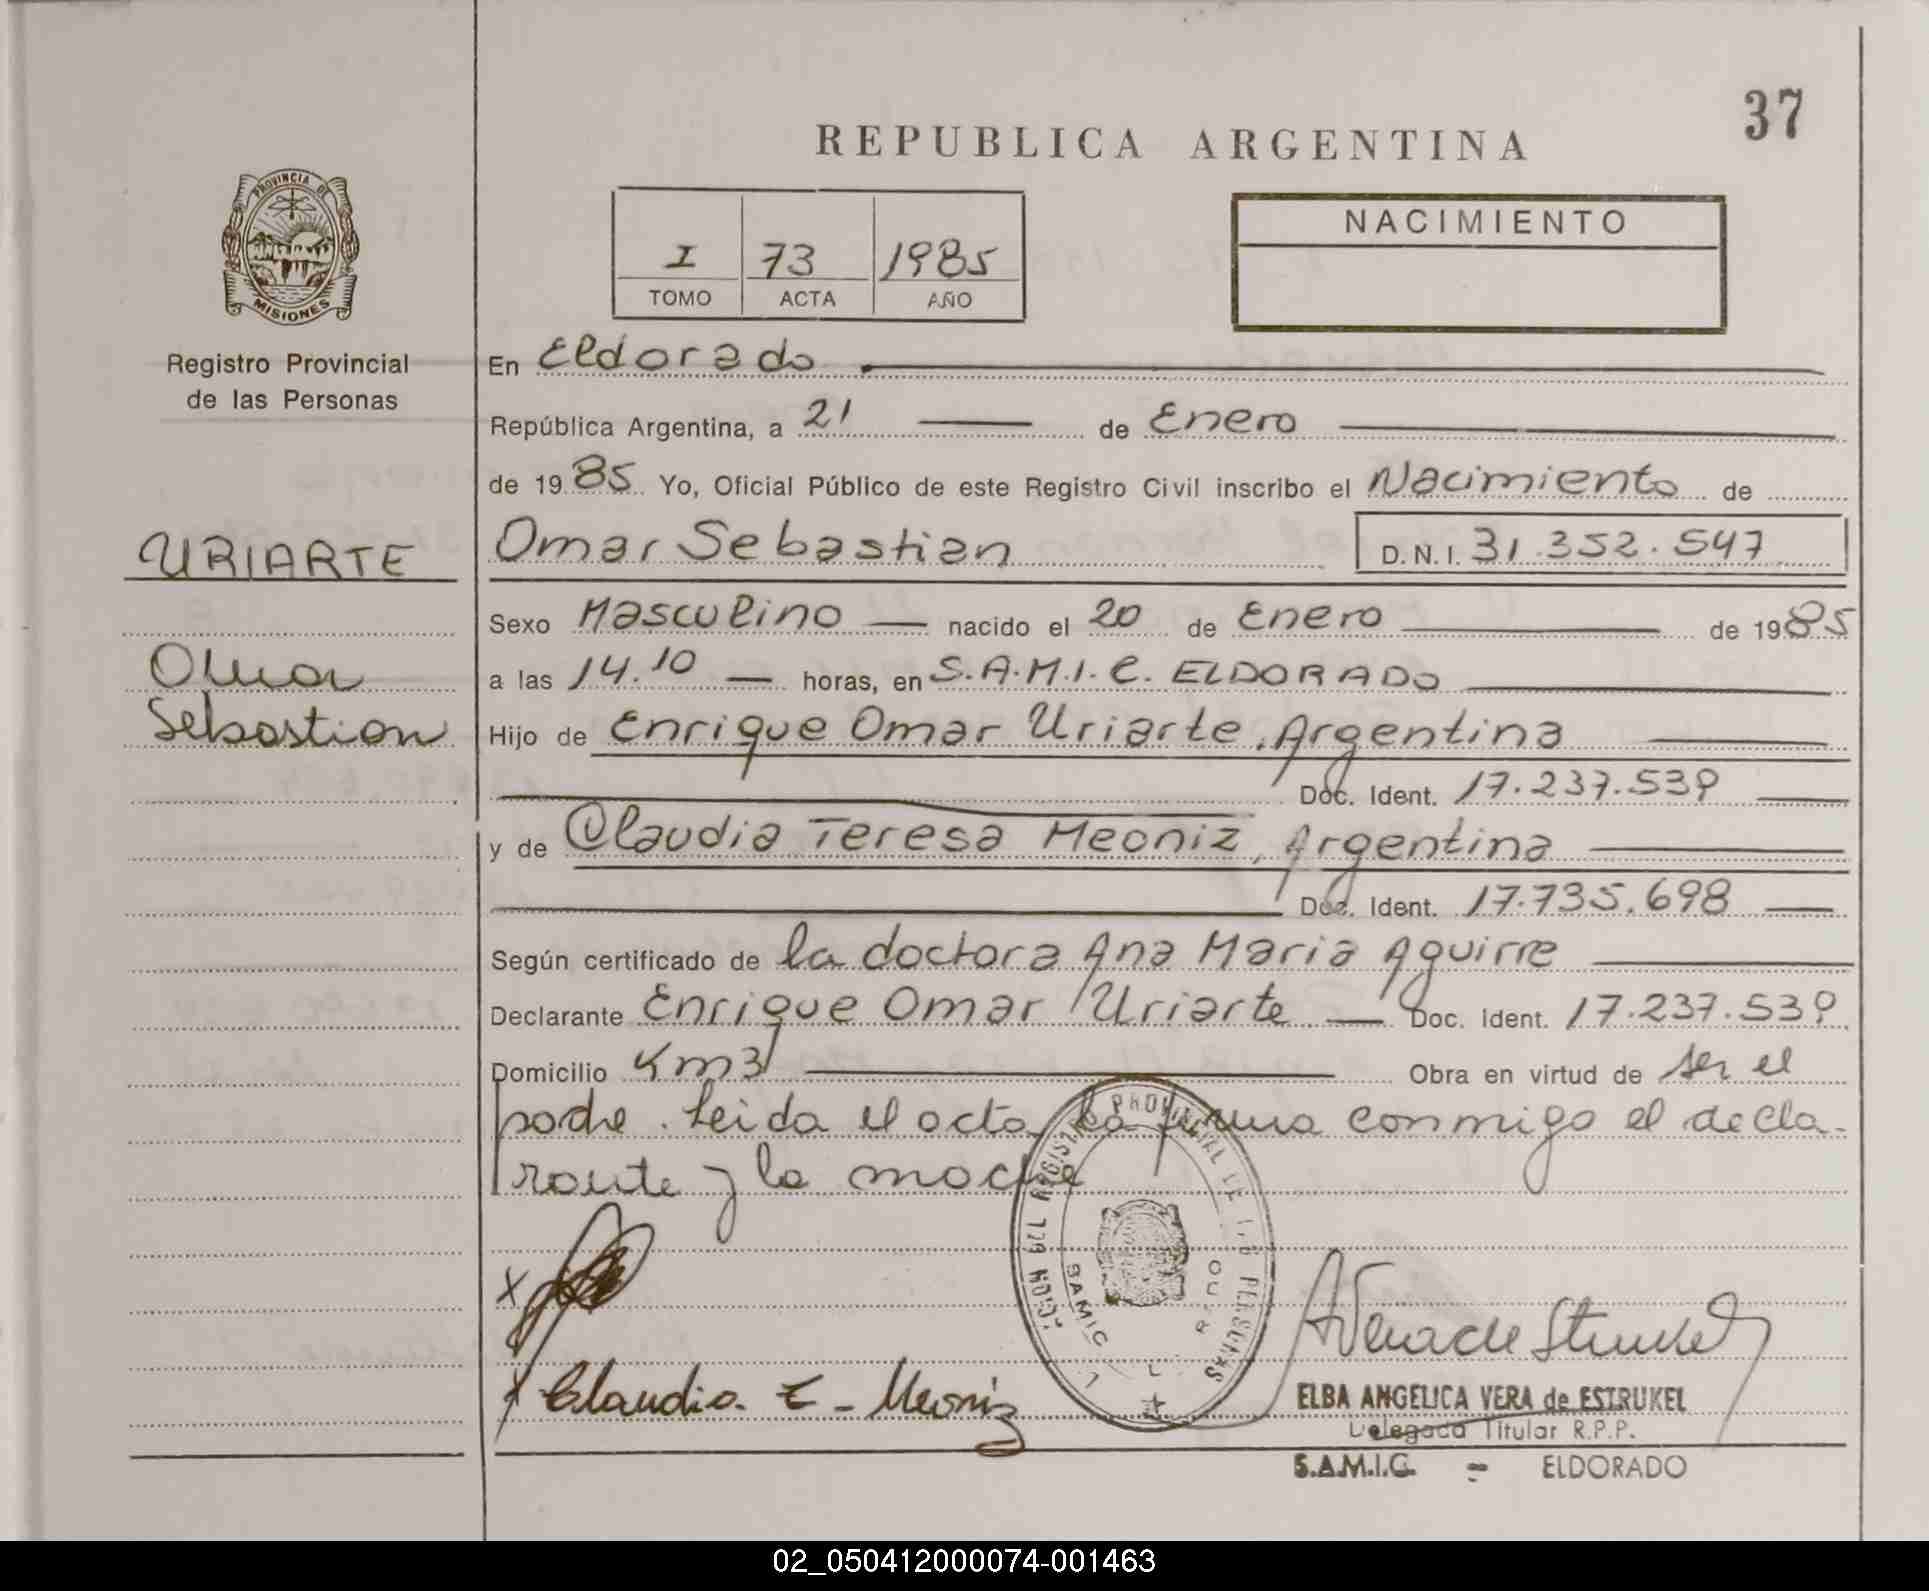 37
REPUBLICA ARGENTINA
PROVINCIA DE
MISIONES
Registro Provincial
de las Personas
I 73 1985
TOMO ACTA AÑO
NACIMIENTO
En Eldorado
República Argentina, a 21 de Enero
de 1985 Yo, Oficial Público de este Registro Civil inscribo el Nacimiento de
URIARTE
Omar Sebastian D.N.I. 31.352.547
Sexo Masculino nacido el 20 de Enero de 1985
Omar
a las 14.10 horas, en S.A.M.I.C. ELDORADO
Sebastian
Hijo de Enrique Omar Uriarte, Argentina
Doc. Ident. 17.237.539
y de Claudia Teresa Meoniz, Argentina
Doc. Ident. 17.735.698
Según certificado de la doctora Ana Maria Aguirre
Declarante Enrique Omar Uriarte Doc. Ident. 17.237.539
Domicilio Km3 Obra en virtud de ser el
padre. Leida el acta la firma conmigo el decla-
rante y la madre
X
X Claudia. T - Meoniz
ELBA ANGELICA VERA de ESTRUKEL
Delegada Titular R.P.P.
S.A.M.I.C. - ELDORADO
02_050412000074-001463